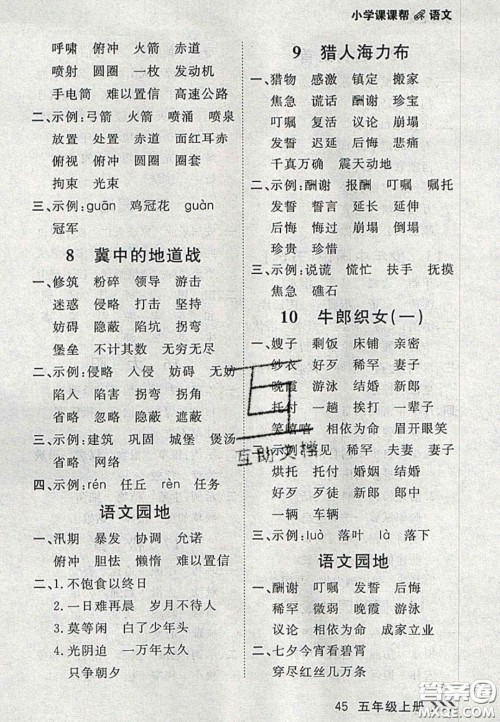 小学课课帮 语文
呼啸 俯冲 火箭 赤道
喷射 圆圈 一枚 发动机
手电筒 难以置信 高速公路
二、示例:弓箭 火箭 喷涌 喷泉
放置 处置 赤道 面红耳赤
俯视 俯冲 圆圈 圈套
拘束 光束
三、示例:guān 鸡冠花 guàn
冠军
8 冀中的地道战
一、修筑 粉碎 领导 游击
迷惑 侵略 打击 坚持
妨碍 隐蔽 陷坑 拐弯
堡垒 不计其数 无穷无尽
二、示例:侵略 入侵 妨碍 无妨
陷入 陷害 拐弯 拐角
省略 忽略 隐蔽 遮蔽
三、示例:建筑 巩固 城堡 煲汤
省略 网络
四、示例:rén 任丘 rèn 任务
语文园地
一、汛期 暴发 协调 允诺
俯冲 胆怯 懒惰 难以置信
二、1.不饱食以终日
2.一日难再晨 岁月不待人
3.莫等闲 白了少年头
4.光阴迫 一万年太久
只争朝夕
9 猎人海力布
一、猎物 感激 镇定 搬家
焦急 谎话 酬谢 珍宝
叮嘱 复活 议论 崩塌
发誓 迟延 后悔 悲痛
千真万确 震天动地
二、示例:酬谢 报酬 叮嘱 嘱托
发誓 誓言 延长 延伸
后悔 悔过 崩塌 崩溃
珍贵 珍惜
三、示例:说谎 慌忙 扶手 抚摸
焦急 礁石
10 牛郎织女(一)
一、嫂子 剩饭 床铺 亲密
纱衣 好歹 稀罕 妻子
晚霞 游泳 结婚 新郎
托付 一趟 挨打 一辈子
笑嘻嘻 相依为命 眉开眼笑
二、示例:罕见 稀罕 夫妻 妻子
烘托 托付 结婚 婚姻
好歹 歹徒 新郎 郎中
一辆 车辆
三、示例:luò 落叶 là 落下
语文园地
一、酬谢 叮嘱 发誓 后悔
稀罕 微弱 晚霞 游泳
议论 相依为命 成家立业
二、七夕今宵看碧霄
穿尽红丝几万条
互动文档
45 五年级上册
答案圈
MXQE.COM